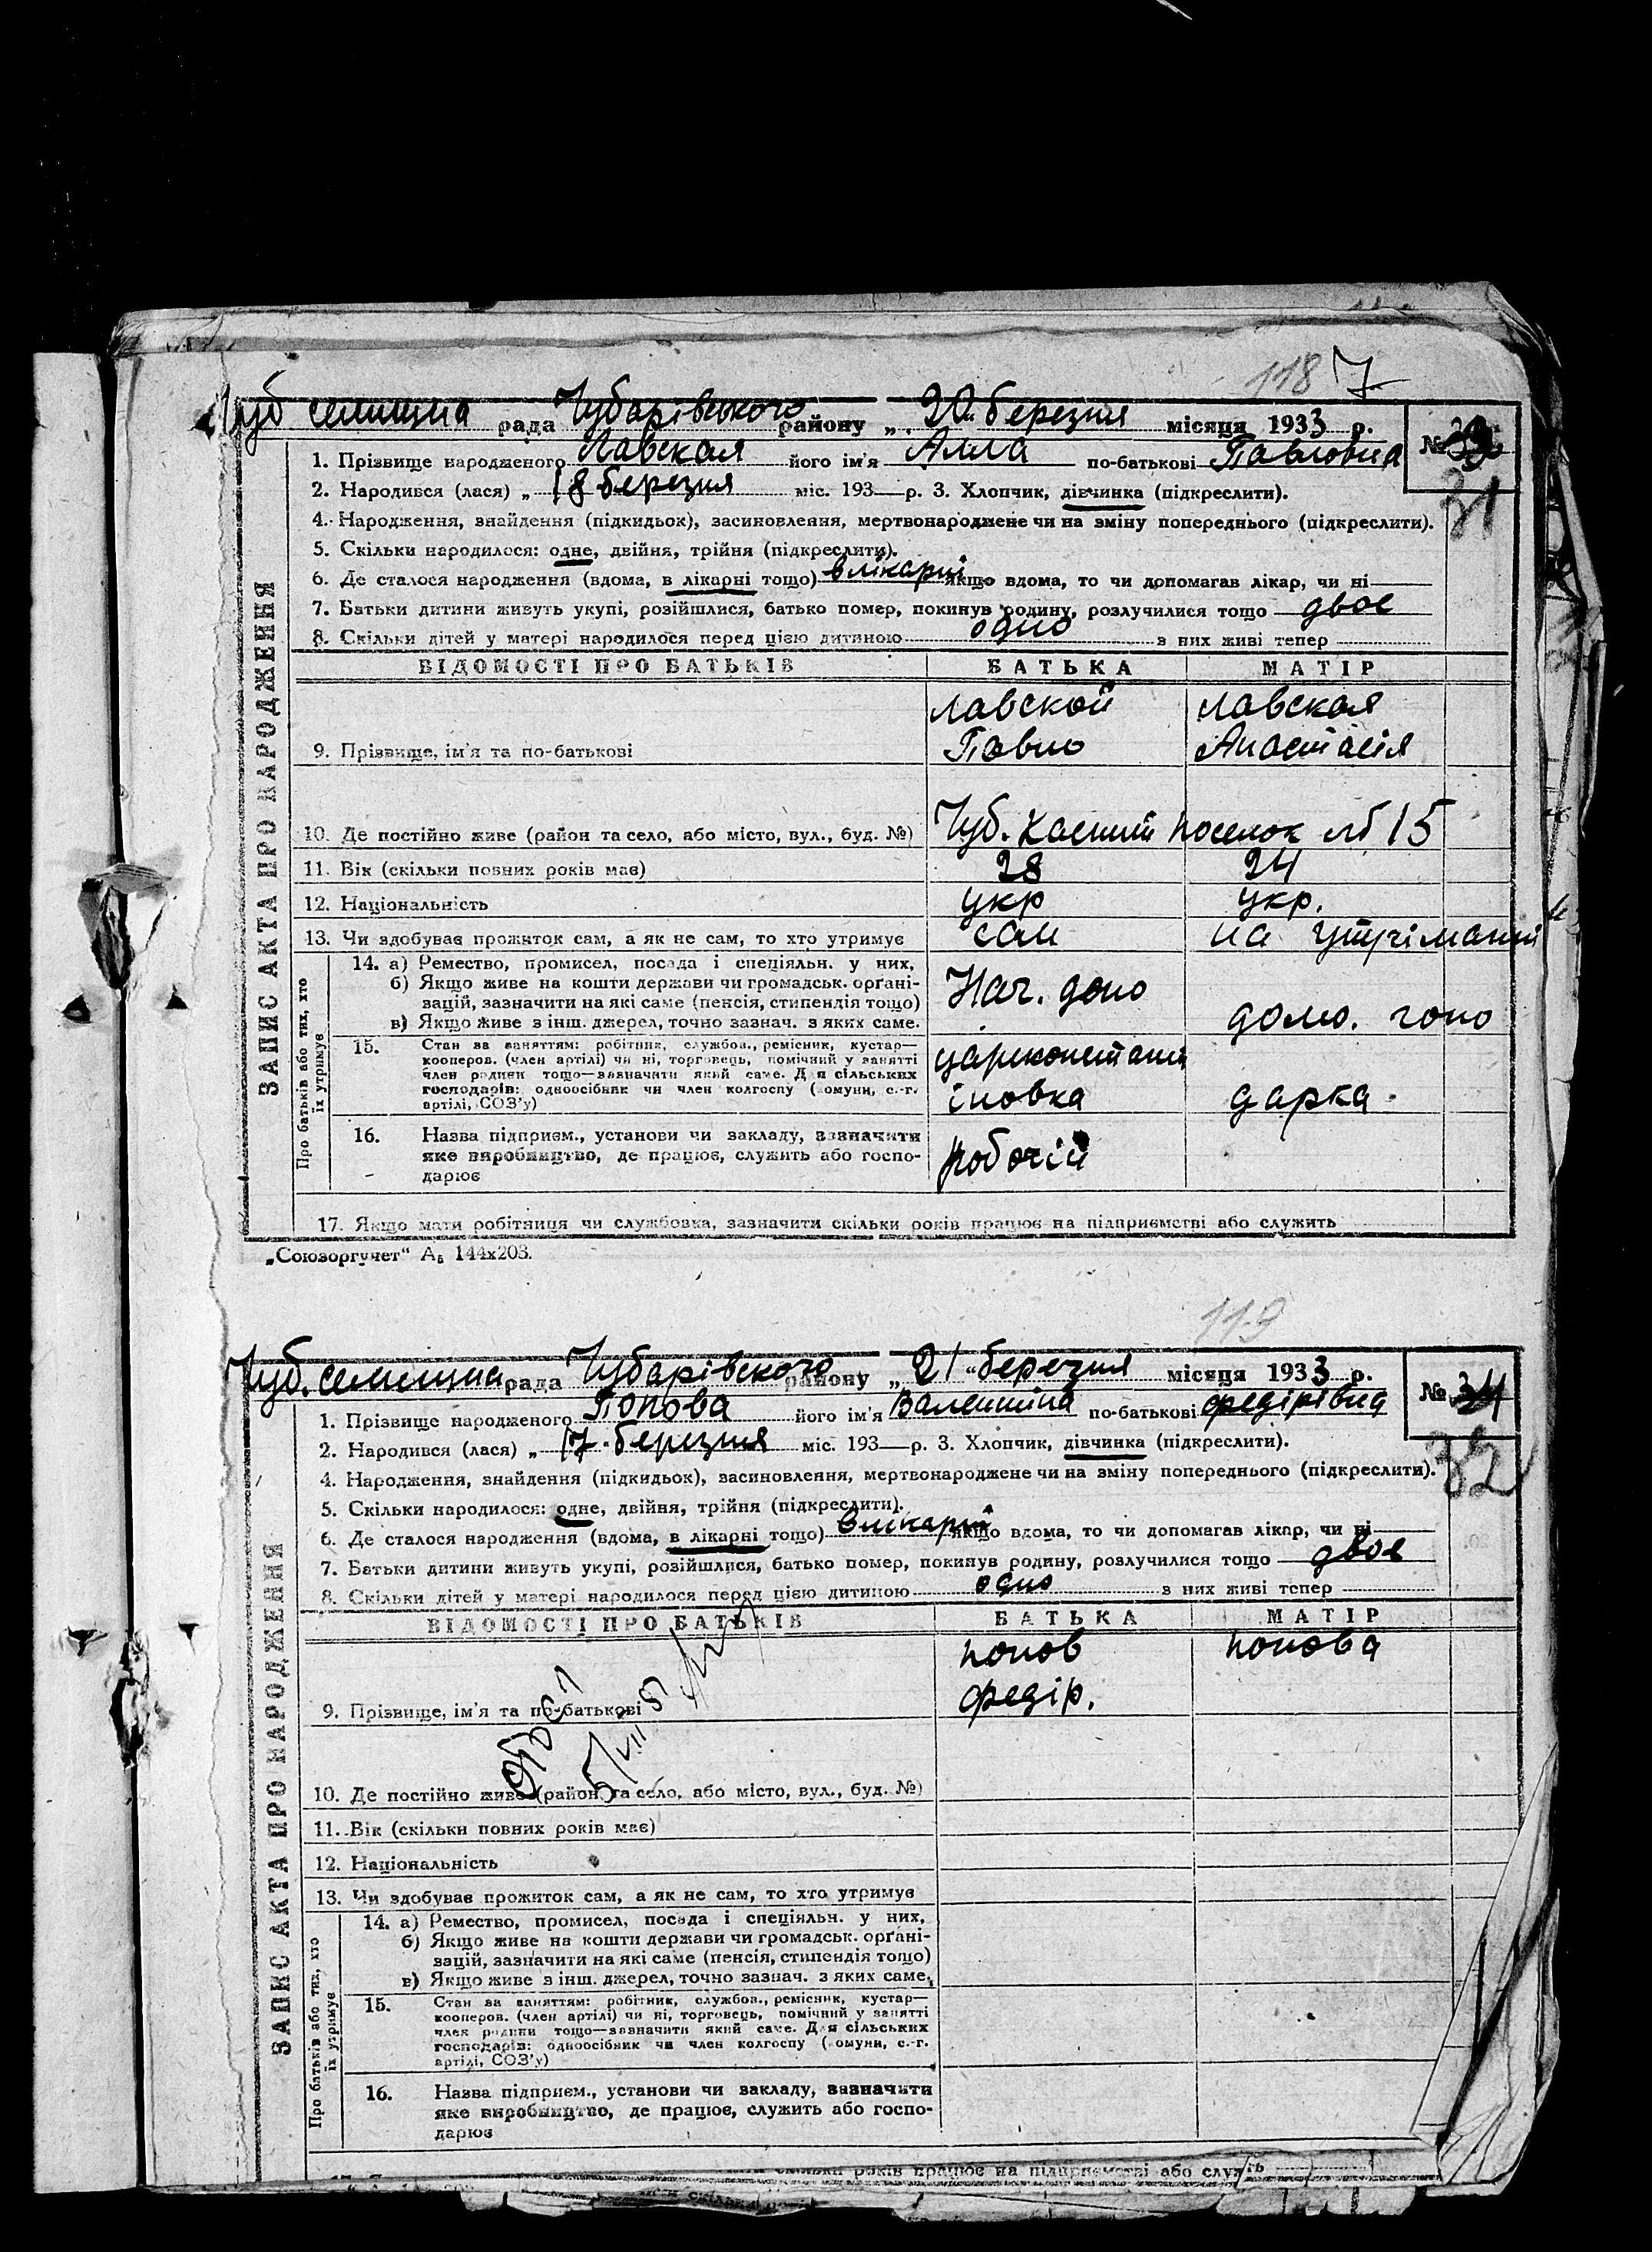 118 7
Чуб селищна рада Чубарівського району „ 20 " березня місяця 1933 р.
№ 33
31
1. Прізвище народженого Лавская його ім'я Алла по-батькові Павловна
2. Народився (лася) „ 18 березня міс. 193 — р. 3. Хлопчик, дівчинка (підкреслити).
4. Народження, знайдення (підкидьок), засиновлення, мертвонароджене чи на зміну попереднього (підкреслити).
5. Скільки народилося: одне, двійня, трійня (підкреслити).
6. Де сталося народження (вдома, в лікарні тощо) в лікарні якщо вдома, то чи допомагав лікар, чи ні —
7. Батьки дитини живуть укупі, розійшлися, батько помер, покинув родину, розлучилися тощо двоє
8. Скільки дітей у матері народилося перед цією дитиною одно з них живі тепер
ЗАПИС АКТА ПРО НАРОДЖЕННЯ
ВІДОМОСТІ ПРО БАТЬКІВ БАТЬКА МАТІР
Лавской Лавская
9. Прізвище, ім'я та по-батькові Павло Анастасія
10. Де постійно живе (район та село, або місто, вул., буд. №) Чуб. поселок 15
11. Вік (скільки повних років має) 28 24
12. Національність укр укр.
13. Чи здобуває прожиток сам, а як не сам, то хто утримує сам на утріманні
Про батьків або тих, хто їх утримує
14. а) Ремество, промисел, посада і спеціяльн. у них,
б) Якщо живе на кошти держави чи громадськ. орґані-
зацій, зазначити на які саме (пенсія, стипендія тощо) Нач. депо
в) Якщо живе з інш. джерел, точно зазнач. з яких саме. домо. госпо
15. Стан за заняттям: робітник, службов., ремісник, кустар—
кооперов. (член артілі) чи ні, торговець, помічний у занятті царконстант
член родини тощо—зазначити який саме. Для сільських
господарів: одноосібник чи член колгоспу (комуни, с.-г.
артілі, СОЗ'у) іновка дарка
16. Назва підприєм., установи чи закладу, зазначити
яке виробництво, де працює, служить або госпо- робочій
дарює
17. Якщо мати робітниця чи службовка, зазначити скільки років працює на підприємстві або служить
„Союзоргучет" А₅ 144х203.
119
Чуб. селищна рада Чубарівського району „ 21 " березня місяця 1933 р.
№ 34
32
1. Прізвище народженого Попова його ім'я Валентіна по-батькові Федірівна
2. Народився (лася) „ 17 березня міс. 193 — р. 3. Хлопчик, дівчинка (підкреслити).
4. Народження, знайдення (підкидьок), засиновлення, мертвонароджене чи на зміну попереднього (підкреслити).
5. Скільки народилося: одне, двійня, трійня (підкреслити).
6. Де сталося народження (вдома, в лікарні тощо) в лікарні якщо вдома, то чи допомагав лікар, чи ні —
7. Батьки дитини живуть укупі, розійшлися, батько помер, покинув родину, розлучилися тощо двоє
8. Скільки дітей у матері народилося перед цією дитиною одно з них живі тепер
ЗАПИС АКТА ПРО НАРОДЖЕННЯ
ВІДОМОСТІ ПРО БАТЬКІВ БАТЬКА МАТІР
Попов Попова
9. Прізвище, ім'я та по-батькові Федір.
10. Де постійно живе (район та село, або місто, вул., буд. №)
11. Вік (скільки повних років має)
12. Національність
13. Чи здобуває прожиток сам, а як не сам, то хто утримує
Про батьків або тих, хто їх утримує
14. а) Ремество, промисел, посада і спеціяльн. у них,
б) Якщо живе на кошти держави чи громадськ. орґані-
зацій, зазначити на які саме (пенсія, стипендія тощо)
в) Якщо живе з інш. джерел, точно зазнач. з яких саме.
15. Стан за заняттям: робітник, службов., ремісник, кустар—
кооперов. (член артілі) чи ні, торговець, помічний у занятті
член родини тощо—зазначити який саме. Для сільських
господарів: одноосібник чи член колгоспу (комуни, с.-г.
артілі, СОЗ'у)
16. Назва підприєм., установи чи закладу, зазначити
яке виробництво, де працює, служить або госпо-
дарює
скільки років працює на підприємстві або служить